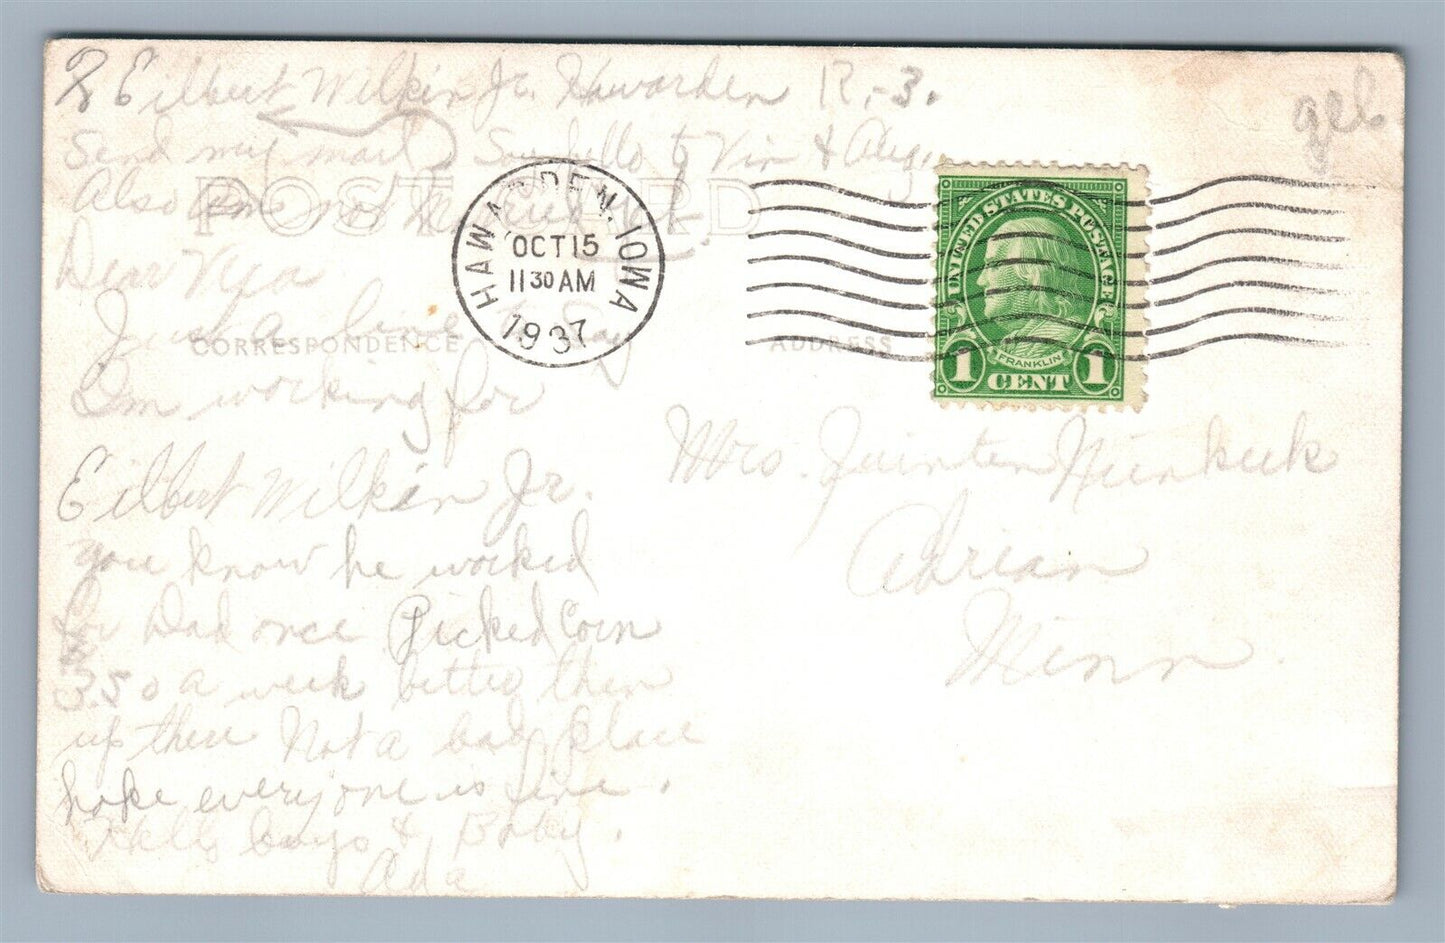 Eilbert Wilkin Jr. Hawarden R.-3.
geb
Send my mail Say hello to Vin & Aug.
Also
POST CARD
HAWARDEN, IOWA
OCT 15
11 30 AM
1937
UNITED STATES POSTAGE
FRANKLIN
1 CENT 1
Dear
Just a line to Say
CORRESPONDENCE
ADDRESS
Im working for
Eilbert Wilkin Jr.
you know he worked
for Dad once Picked Corn
3.50 a week better then
up there Not a bad place
hope everyone is fine.
Hello boys & Baby.
Ada
Mrs. Quinten
Adrian
Minn.